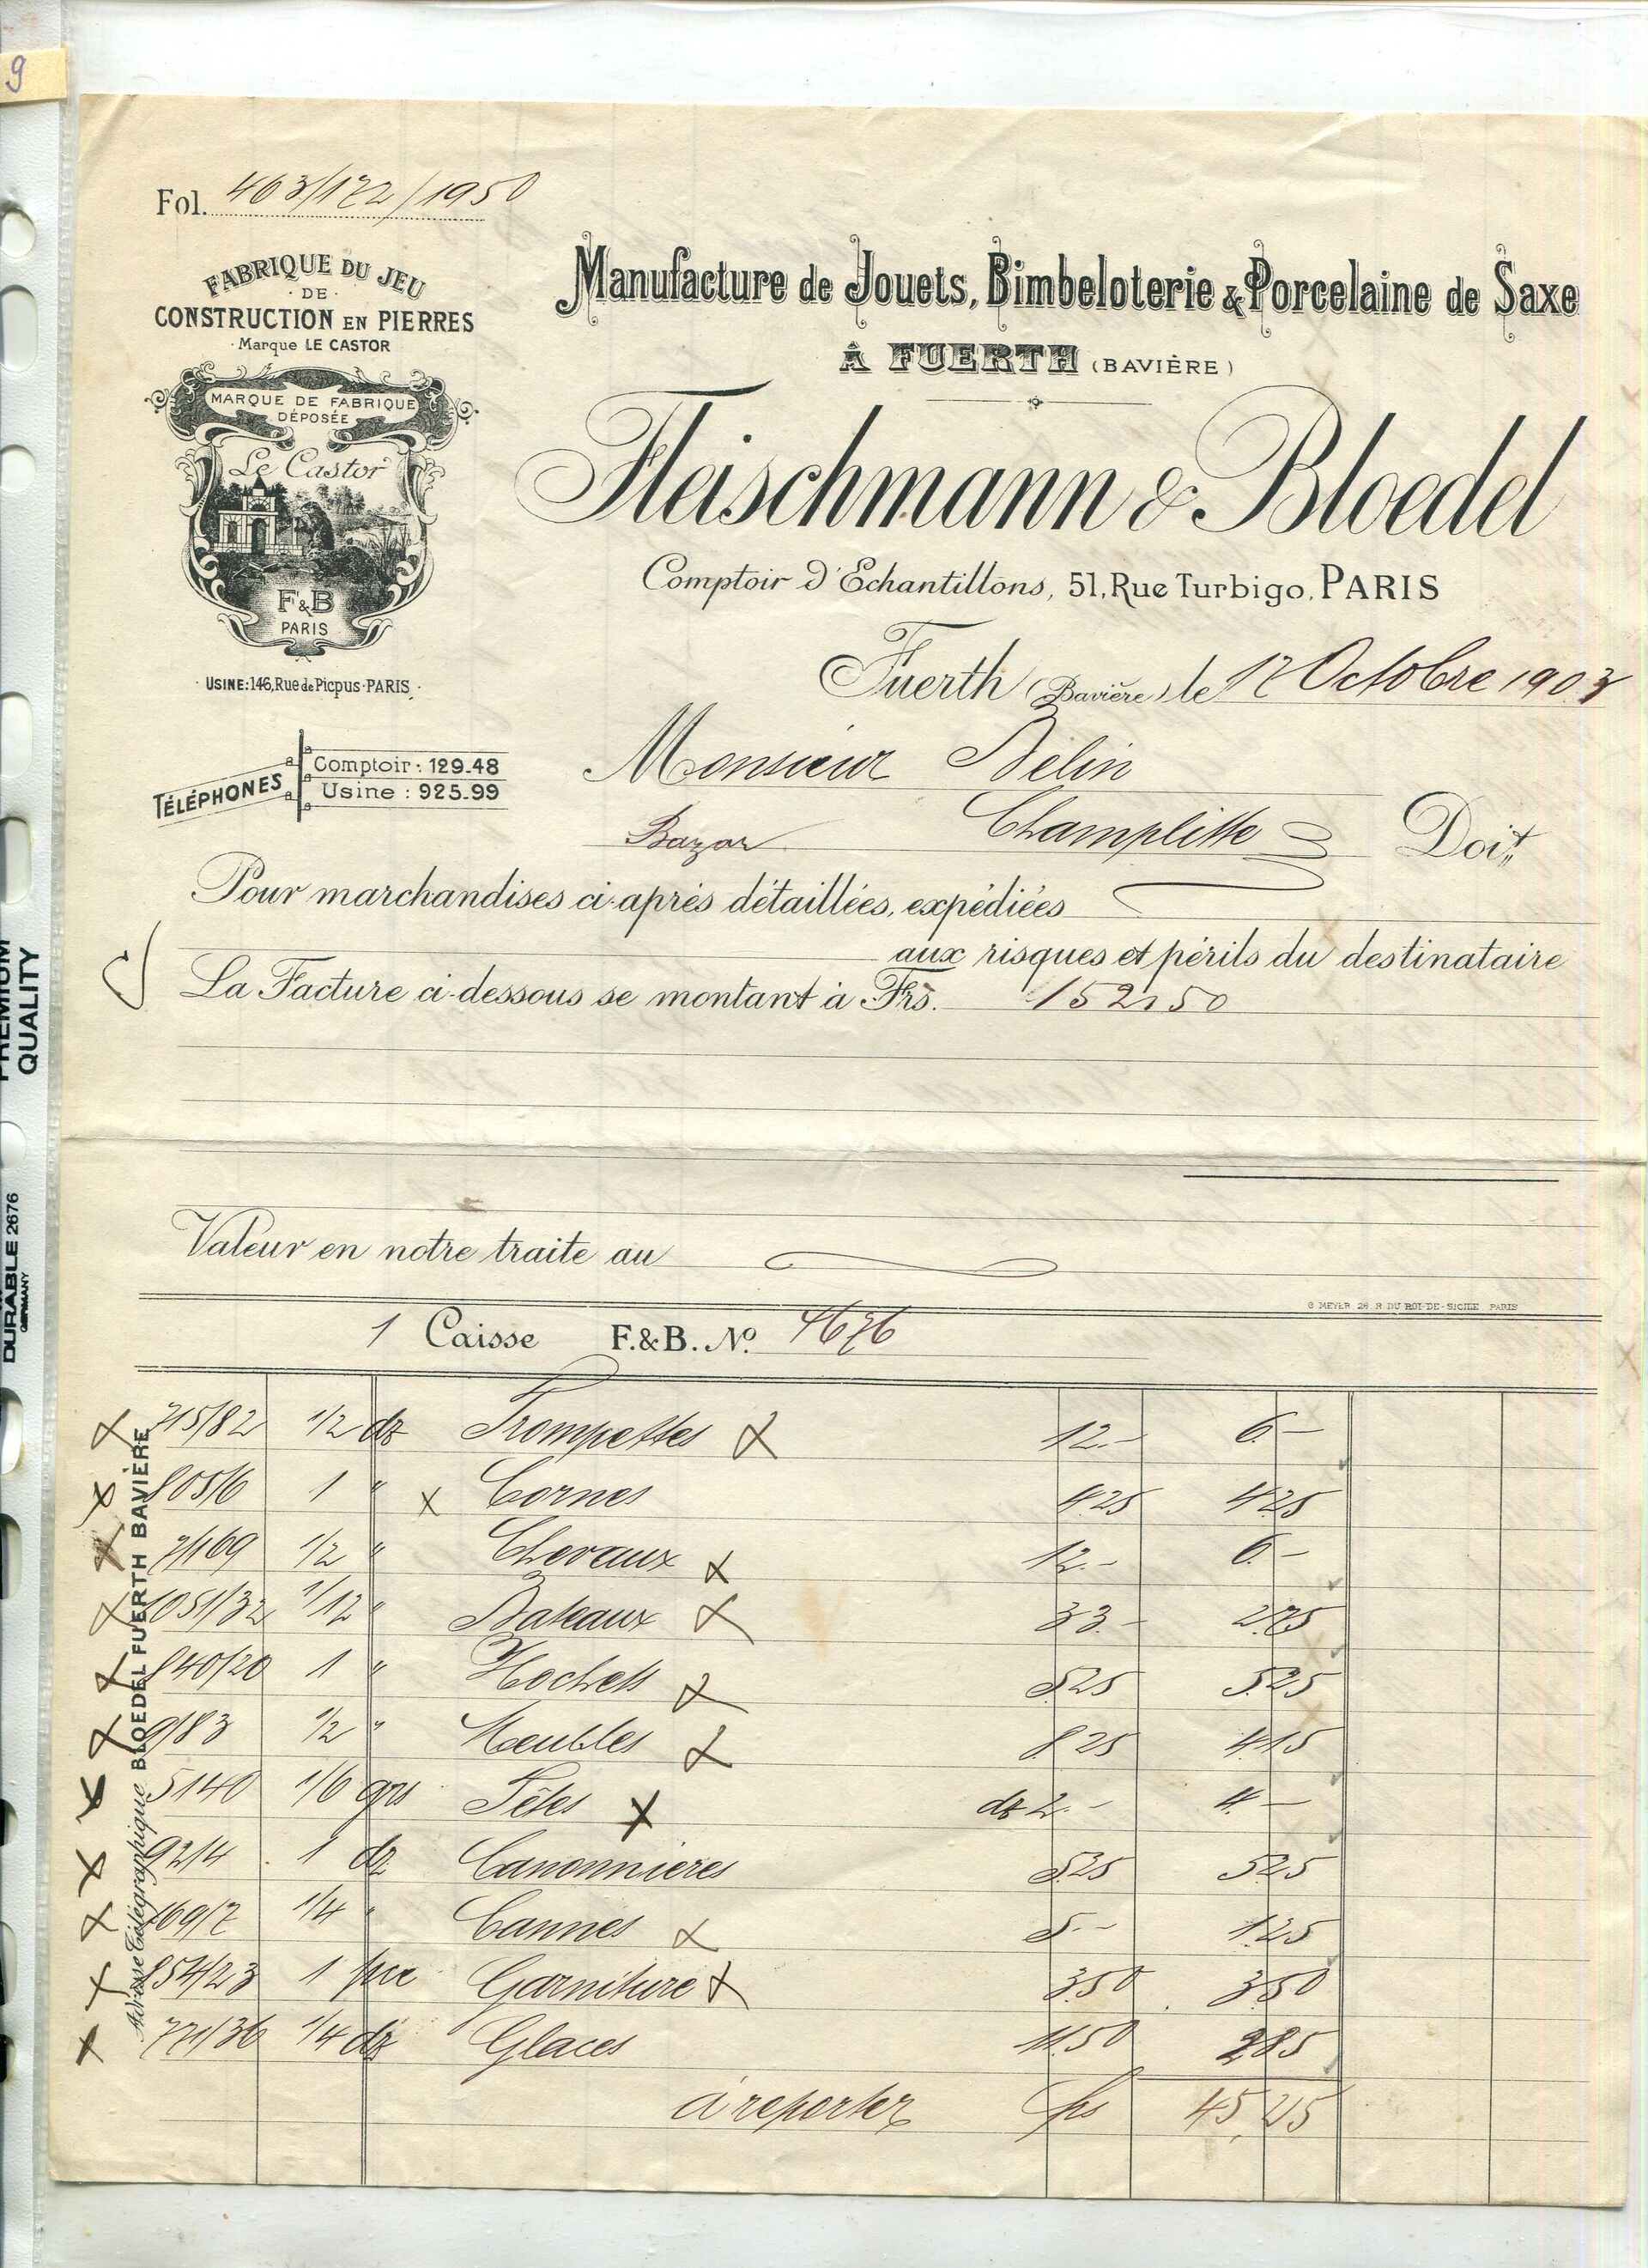 9
Fol. 463/172/1950
FABRIQUE DU JEU
· DE ·
CONSTRUCTION EN PIERRES
· Marque LE CASTOR
MARQUE DE FABRIQUE
DÉPOSÉE
Le Castor
F&B
PARIS
· USINE: 146, Rue de Picpus · PARIS ·
TÉLÉPHONES
Comptoir : 129-48
Usine : 925-99
Manufacture de Jouets, Bimbeloterie & Porcelaine de Saxe
À FUERTH (BAVIÈRE)
Fleischmann & Bloedel
Comptoir d'Echantillons, 51, Rue Turbigo, PARIS
Fuerth (Bavière) le 17 Octobre 1903
Monsieur Belin
Bazar Champlitte Doit
Pour marchandises ci-après détaillées, expédiées
aux risques et périls du destinataire
La Facture ci-dessous se montant à Frs. 152,50
Valeur en notre traite au
G MEYER 26 R DU ROI-DE-SICILE PARIS
1 Caisse F.&B. No. 4676
715/82 1/2 dz Trompettes 12.- 6.-
805/6 1 " Cornes 4.25 4.25
7/169 1/2 " Chevaux 12.- 6.-
1051/32 1/12 " Bateaux 33.- 2.75
840/20 1 " Hochets 5.25 5.25
9/83 1/2 " Meubles 8.25 4.15
5140 1/6 grs Têtes dz 2.- 4.-
92/4 1 dz Canonnieres 5.25 5.25
169/7 1/4 " Cannes 5.- 1.25
854/23 1 pce Garniture 3.50 3.50
771/36 1/4 dz Glaces 11.50 2.85
à reporter frs 45,25
Adresse Télégraphique BLOEDEL FUERTH BAVIÈRE
PREMIUM
QUALITY
DURABLE 2676
GERMANY